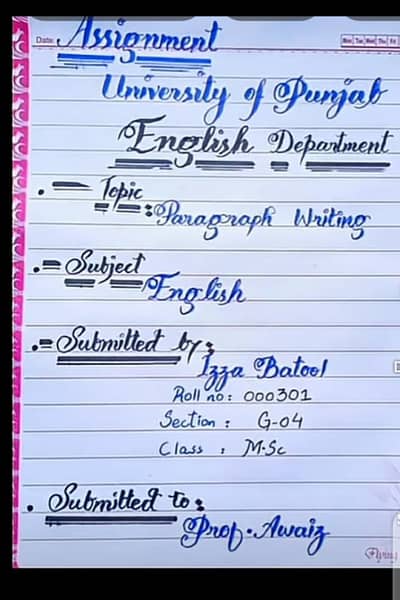 Date:
Mon Tue Wed Thu Fri
Assignment
University of Punjab
English Department
Topic
:Paragraph Writing
Subject
English
Submitted by:
Izza Batool
Roll no: 000301
Section : G-04
Class : M.Sc
Submitted to:
Prof. Awaiz
Flying